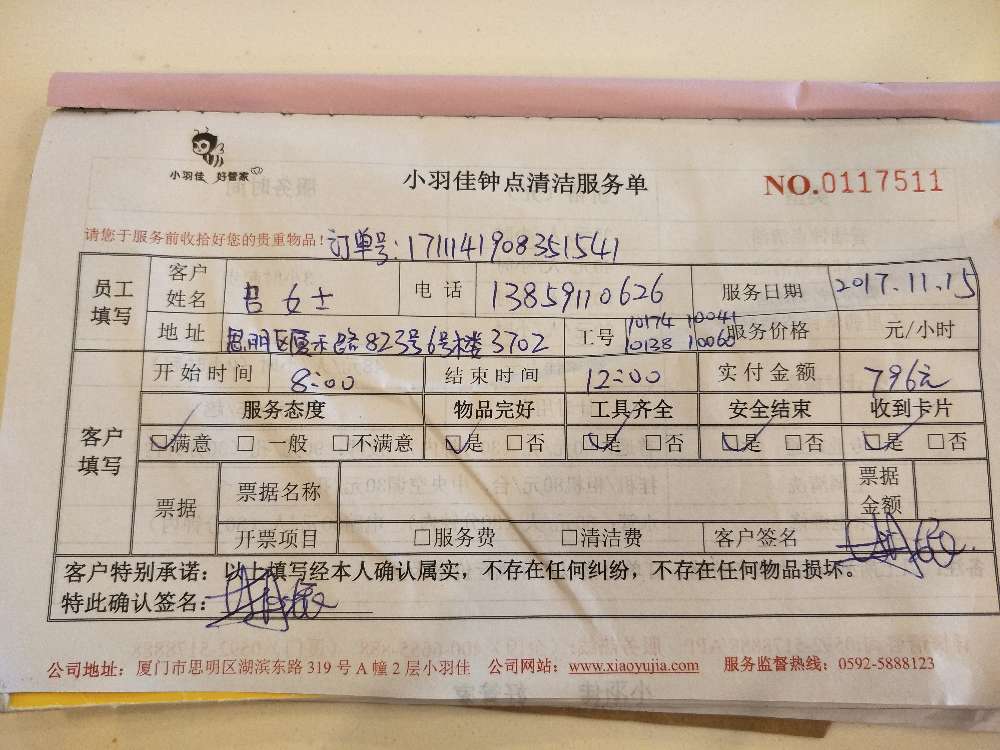 小羽佳 好管家
小羽佳钟点清洁服务单
NO.0117511
请您于服务前收拾好您的贵重物品! 订单号:1711141908351541
员工填写 客户姓名 吕女士 电话 13859110626 服务日期 2017.11.15
地址 思明区厦禾路823号6号楼3702 工号 10174 10041 10138 10060 服务价格 元/小时
客户填写 开始时间 8:00 结束时间 12:00 实付金额 796元
服务态度 物品完好 工具齐全 安全结束 收到卡片
☑满意 □一般 □不满意 ☑是 □否 ☑是 □否 ☑是 □否 ☑是 □否
票据 票据名称 票据金额
开票项目 □服务费 □清洁费 客户签名
客户特别承诺:以上填写经本人确认属实,不存在任何纠纷,不存在任何物品损坏。
特此确认签名:
公司地址:厦门市思明区湖滨东路 319 号 A 幢 2 层小羽佳 公司网站:www.xiaoyujia.com 服务监督热线:0592-5888123